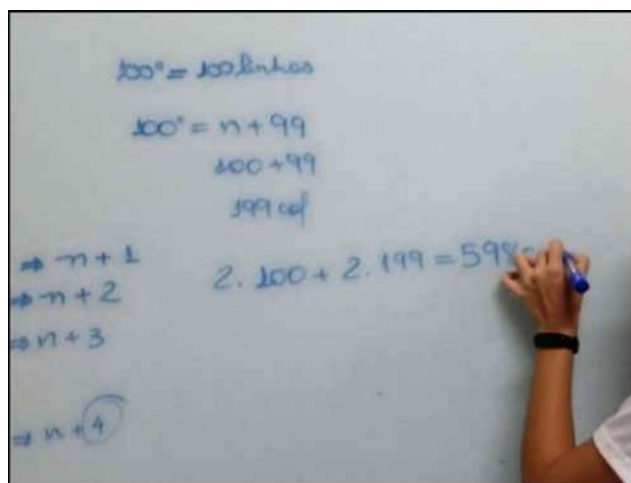 100° = 100 linhas
100° = n + 99
100 + 99
199 col
⇒ n + 1
⇒ n + 2
⇒ n + 3
⇒ n + 4
2 . 100 + 2 . 199 = 598